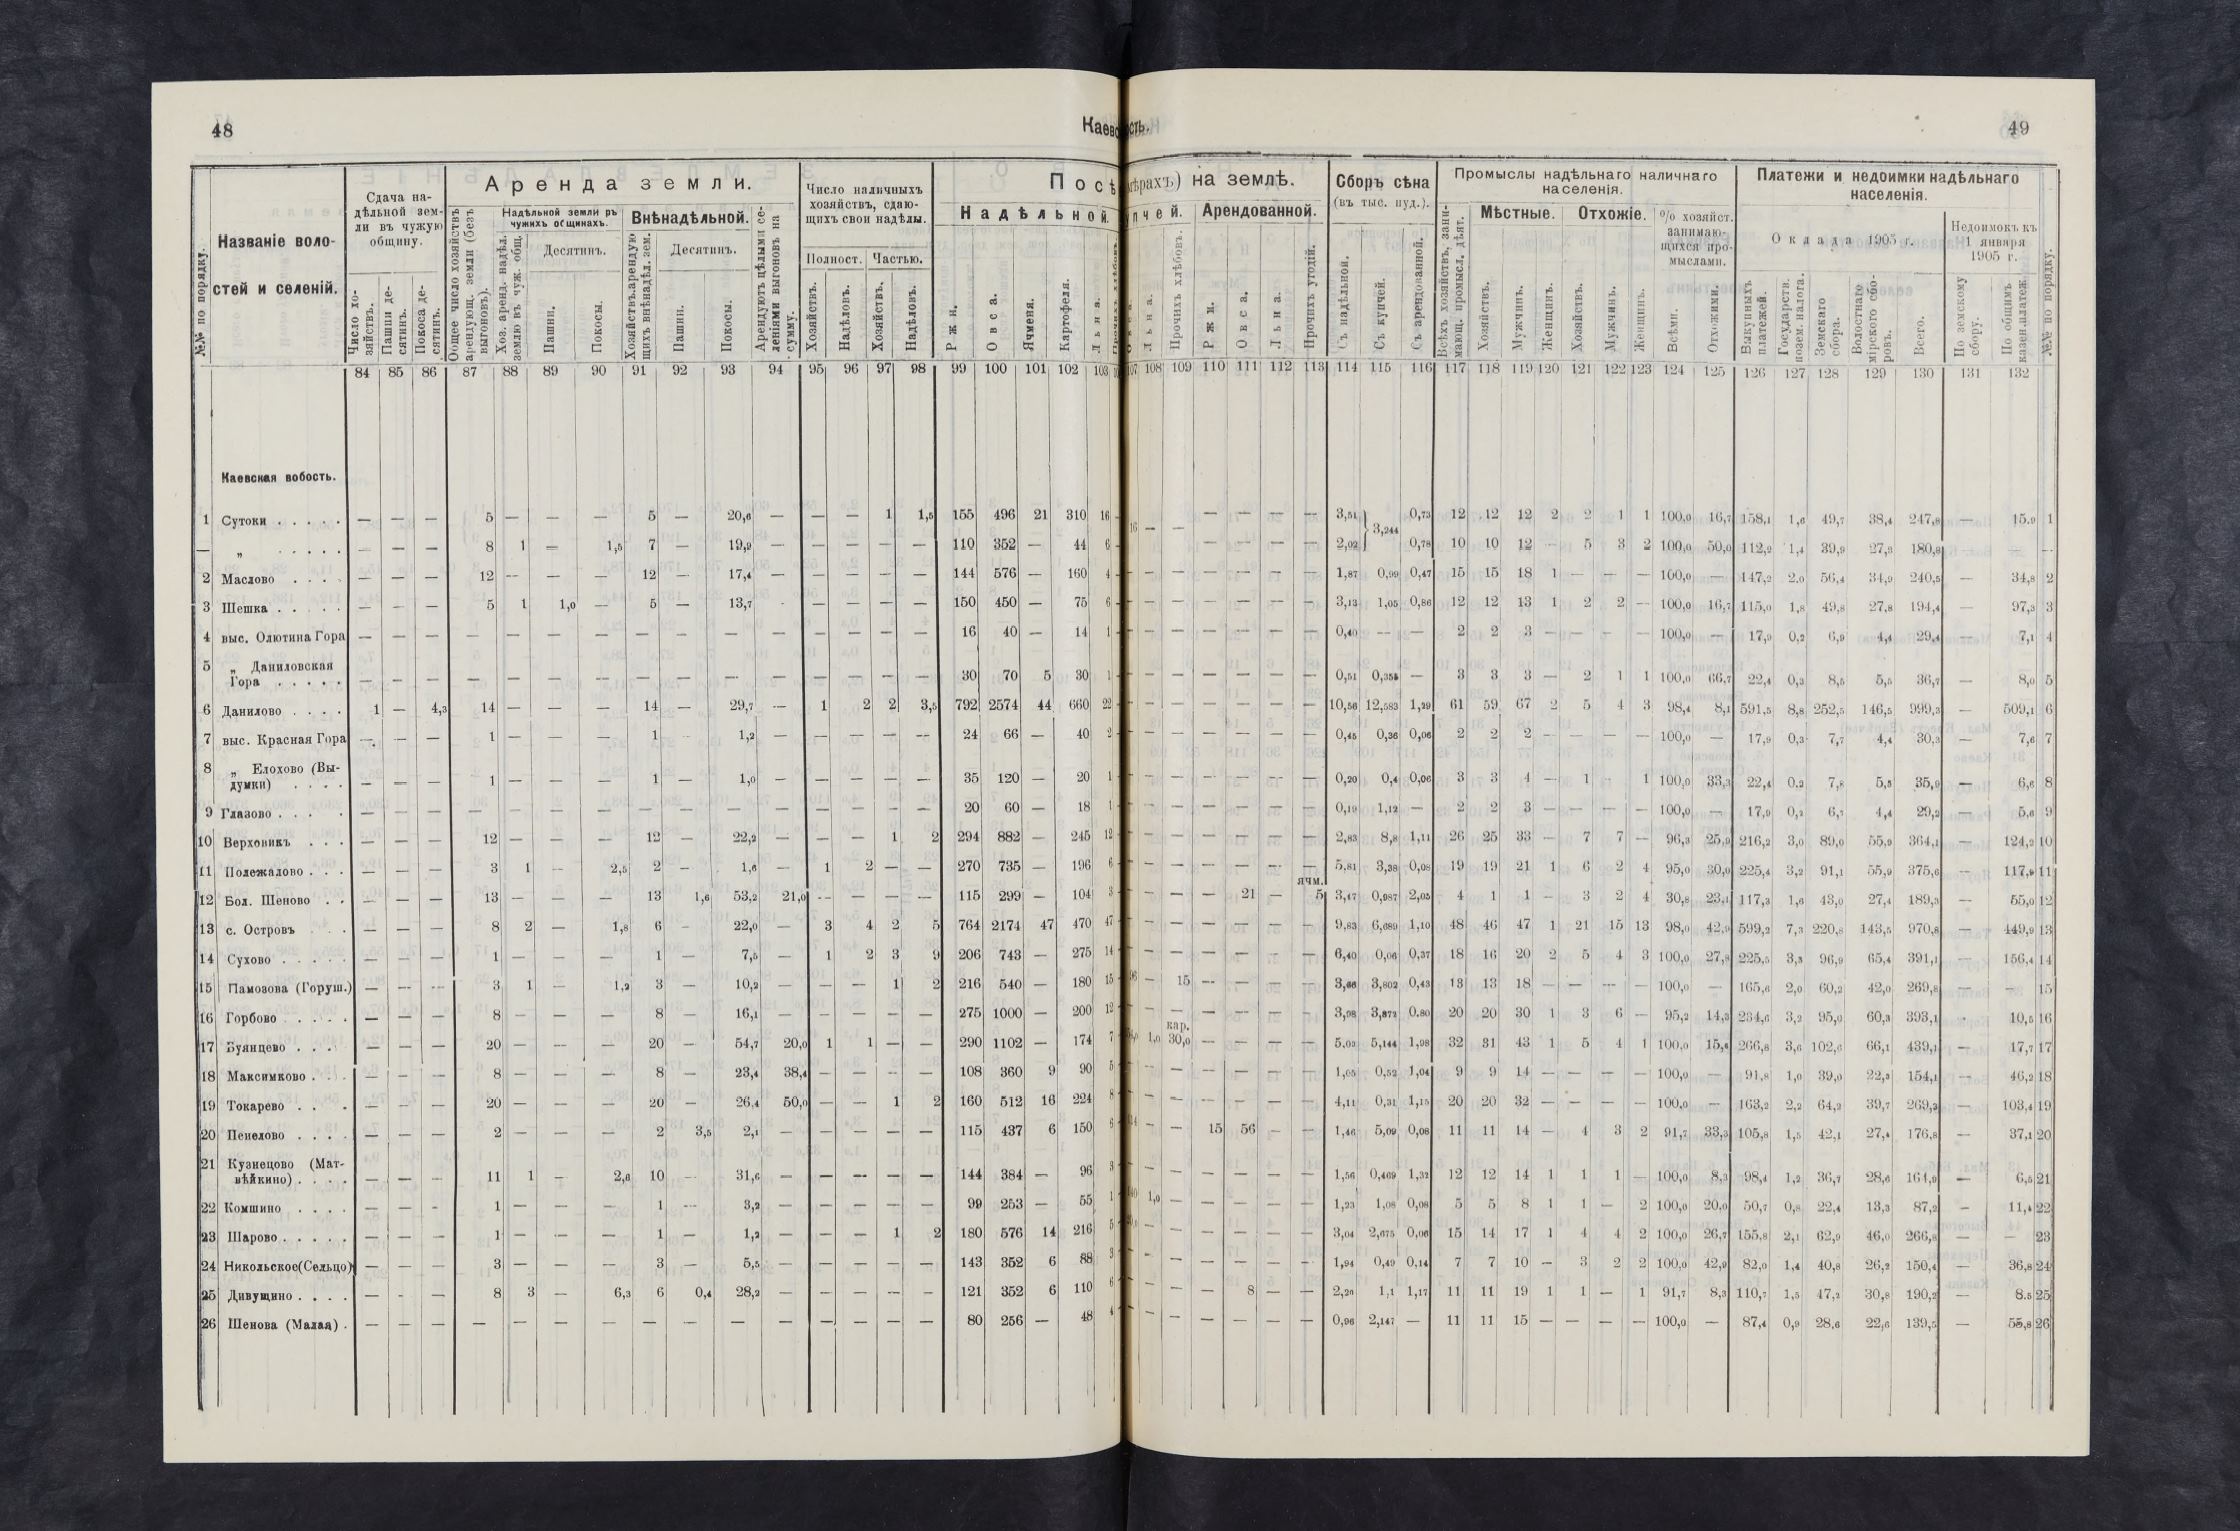 48
Каевс
ость.
49
№№ по порядку.
Названіе воло-
стей и селеній.
Сдача на-
дѣльной зем-
ли въ чужую
общину.
Число хо-
зяйствъ.
Пашни де-
сятинъ.
Покоса де-
сятинъ.
Аренда земли.
Общее число хозяйствъ
арендующ. земли (безъ
выгоновъ).
Надѣльной земли въ
чужихъ общинахъ.
Хоз. аренд. надѣл.
землю въ чуж. общ.
Десятинъ.
Пашни.
Покосы.
Внѣнадѣльной.
Хозяйствъ арендую
щихъ внѣнадѣл. зем.
Десятинъ.
Пашни.
Покосы.
Арендуютъ цѣлыми се-
леніями выгоновъ на
сумму.
Число наличныхъ
хозяйствъ, сдаю-
щихъ свои надѣлы.
Полност. Частью.
Хозяйствъ.
Надѣловъ.
Хозяйствъ.
Надѣловъ.
Посѣ
Надѣльной.
Ржи.
Овса.
Ячменя.
Картофеля.
Льна.
мѣрахъ) на землѣ.
упчей. Арендованной.
Льна.
Прочихъ хлѣбовъ.
Ржи.
Овса.
Льна.
Прочихъ угодій.
Сборъ сѣна
(въ тыс. пуд.).
Съ надѣльной.
Съ купчей.
Съ арендованной.
Промыслы надѣльнаго наличнаго
населенія.
Всѣхъ хозяйствъ, зани-
мающ. промысл. дѣят.
Мѣстные. Отхожіе.
Хозяйствъ.
Мужчинъ.
Женщинъ.
Хозяйствъ.
Мужчинъ.
Женщинъ.
% хозяйст.
занимаю-
щихся про-
мыслами.
Всѣми.
Отхожими.
Платежи и недоимки надѣльнаго
населенія.
Оклада 1905 г.
Выкупныхъ
платежей.
Государств.
позем. налога.
Земскаго
сбора.
Волостнаго
мірского сбо-
ровъ.
Всего.
Недоимокъ къ
1 января
1905 г.
По земскому
сбору.
По общимъ
казен. платеж.
№№ по порядку.
84 85 86 87 88 89 90 91 92 93 94 95 96 97 98 99 100 101 102 103 107 108 109 110 111 112 113 114 115 116 117 118 119 120 121 122 123 124 125 126 127 128 129 130 131 132
Каевская вобость.
1 Сутоки . . . . . — — — 5 — — — 5 — 20,6 — — — 1 1,5 155 496 21 310 16 16 — — — — — — 3,51 3,244 0,73 12 12 12 2 2 1 1 100,0 16,7 158,1 1,6 49,7 38,4 247,8 — 15,9 1
— „ . . . . . — — — 8 1 — 1,5 7 — 19,9 — — — — — 110 352 — 44 6 — — — — 2,02 0,78 10 10 12 — 5 3 2 100,0 50,0 112,2 1,4 39,9 27,3 180,8 — —
2 Маслово . . . . — — — 12 — — — 12 — 17,4 — — — — — 144 576 — 160 4 — — — — — — — 1,87 0,99 0,47 15 15 18 1 — — — 100,0 — 147,2 2,0 56,4 34,9 240,5 — 34,8 2
3 Шешка . . . . . — — — 5 1 1,0 — 5 — 13,7 — — — — 150 450 — 75 6 — — — — — — — 3,13 1,05 0,86 12 12 13 1 2 2 — 100,0 16,7 115,0 1,8 49,8 27,8 194,4 — 97,3 3
4 выс. Олютина Гора — — — — — — — — — — — — — — — 16 40 — 14 1 — — — — — — — 0,40 — — 2 2 3 — — — — 100,0 — 17,9 0,2 6,9 4,4 29,4 — 7,1 4
5 „ Даниловская
Гора . . . . . — — — — — — — — — — — — — — — 30 70 5 30 1 — — — — — — — 0,51 0,354 — 3 3 3 — 2 1 1 100,0 66,7 22,4 0,3 8,5 5,5 36,7 — 8,0 5
6 Данилово . . . . 1 — 4,3 14 — — — 14 — 29,7 — 1 2 2 3,5 792 2574 44 660 22 — — — — — — — 10,56 12,583 1,29 61 59 67 2 5 4 3 98,4 8,1 591,5 8,8 252,5 146,5 999,3 — 509,1 6
7 выс. Красная Гора — — — 1 — — — 1 — 1,2 — — — — — 24 66 — 40 2 — — — — — — — 0,45 0,36 0,06 2 2 2 — — — — 100,0 — 17,9 0,3 7,7 4,4 30,3 — 7,6 7
8 „ Елохово (Вы-
думки) . . . . — — — 1 — — — 1 — 1,0 — — — — — 35 120 — 20 1 — — — — — — — 0,20 0,4 0,06 3 3 4 — 1 — 1 100,0 33,3 22,4 0,2 7,8 5,5 35,9 — 6,6 8
9 Глазово . . . . — — — — — — — — — — — — — — — 20 60 — 18 1 — — — — — — — 0,19 1,12 — 2 2 3 — — — — 100,0 — 17,9 0,2 6,7 4,4 29,2 — 5,6 9
10 Верховикъ . . . — — — 12 — — — 12 — 22,2 — — — 1 2 294 882 — 245 12 — — — — — — — 2,83 8,8 1,11 26 25 33 — 7 7 — 96,3 25,9 216,2 3,0 89,0 55,9 364,1 — 124,2 10
11 Полежалово . . . — — — 3 1 — 2,5 2 — 1,6 — 1 2 — — 270 735 — 196 6 — — — — — — — 5,81 3,38 0,08 19 19 21 1 6 2 4 95,0 30,0 225,4 3,2 91,1 55,9 375,6 — 117,9 11
12 Бол. Шеново . . — — — 13 — — — 13 1,6 53,2 21,0 — — — — 115 299 — 104 3 — — — — 21 — ячм. 5 3,47 0,987 2,05 4 1 1 — 3 2 4 30,8 23,1 117,3 1,6 43,0 27,4 189,3 — 55,0 12
13 с. Островъ . . . — — — 8 2 — 1,8 6 — 22,0 — 3 4 2 5 764 2174 47 470 47 — — — — — — — 9,83 6,689 1,10 48 46 47 1 21 15 13 98,0 42,9 599,2 7,3 220,8 143,5 970,8 — 449,9 13
14 Сухово . . . . . — — — 1 — — — 1 — 7,5 — 1 2 3 9 206 743 — 275 14 — — — — — — — 6,40 0,06 0,37 18 16 20 2 5 4 3 100,0 27,8 225,5 3,3 96,9 65,4 391,1 — 156,4 14
15 Памозова (Горуш.) — — — 3 1 — 1,2 3 — 10,2 — — — 1 2 216 540 — 180 15 — 15 — — — — 3,66 3,802 0,43 13 13 18 — — — — 100,0 — 165,6 2,0 60,2 42,0 269,8 — — 15
16 Горбово . . . . . — — — 8 — — — 8 — 16,1 — — — — — 275 1000 — 200 12 — — — — — — — 3,98 3,872 0,80 20 20 30 1 3 6 — 95,2 14,3 234,6 3,2 95,0 60,3 393,1 — 10,5 16
17 Буянцево . . . . — — — 20 — — — 20 — 54,7 20,0 1 1 — — 290 1102 — 174 7 1,0 кар. 30,0 — — — — 5,02 5,144 1,98 32 31 43 1 5 4 1 100,0 15,6 266,8 3,6 102,6 66,1 439,1 — 17,7 17
18 Максимково . . . — — — 8 — — — 8 — 23,4 38,4 — — — — 108 360 9 90 5 — — — — — — 1,05 0,52 1,04 9 9 14 — — — — 100,0 — 91,8 1,0 39,0 22,3 154,1 — 46,2 18
19 Токарево . . . — — — 20 — — — 20 — 26,4 50,0 — — 1 2 160 512 16 224 8 — — — — — — 4,11 0,31 1,15 20 20 32 — — — — 100,0 — 163,2 2,2 64,2 39,7 269,3 — 103,4 19
20 Пенелово . . . . — — — 2 — — — 2 3,5 2,1 — — — — — 115 437 6 150 6 — — 15 56 — — 1,46 5,09 0,08 11 11 14 — 4 3 2 91,7 33,3 105,8 1,5 42,1 27,4 176,8 — 37,1 20
21 Кузнецово (Мат-
вѣйкино) . . . . — — — 11 1 — 2,6 10 — 31,6 — — — — — 144 384 — 96 3 — — — — — — — 1,56 0,469 1,32 12 12 14 1 1 1 — 100,0 8,3 98,4 1,2 36,7 28,6 164,9 — 6,5 21
22 Комшино . . . . — — — 1 — — — 1 — 3,2 — — — — — 99 253 — 55 1 1,0 — — — — — 1,23 1,08 0,08 5 5 8 1 1 — 2 100,0 20,0 50,7 0,8 22,4 13,3 87,2 — 11,4 22
23 Шарово . . . . . — — — 1 — — — 1 — 1,2 — — — 1 2 180 576 14 216 5 — — — — — — 3,04 2,675 0,06 15 14 17 1 4 4 2 100,0 26,7 155,8 2,1 62,9 46,0 266,8 — — 23
24 Никольское(Сельцо) — — — 3 — — — 3 — 5,5 — — — — — 143 352 6 88 3 — — — — — — 1,94 0,49 0,14 7 7 10 — 3 2 2 100,0 42,9 82,0 1,4 40,8 26,2 150,4 — 36,8 24
25 Дивущино . . . . — — — 8 3 — 6,3 6 0,4 28,2 — — — — — 121 352 6 110 6 — — — — 8 — — 2,20 1,1 1,17 11 11 19 1 1 — 1 91,7 8,3 110,7 1,5 47,2 30,8 190,2 — 8,5 25
26 Шенова (Малая) . — — — — — — — — — — — — — — — 80 256 — 48 4 — — — — — — — 0,96 2,147 — 11 11 15 — — — — 100,0 — 87,4 0,9 28,6 22,6 139,5 — 55,8 26